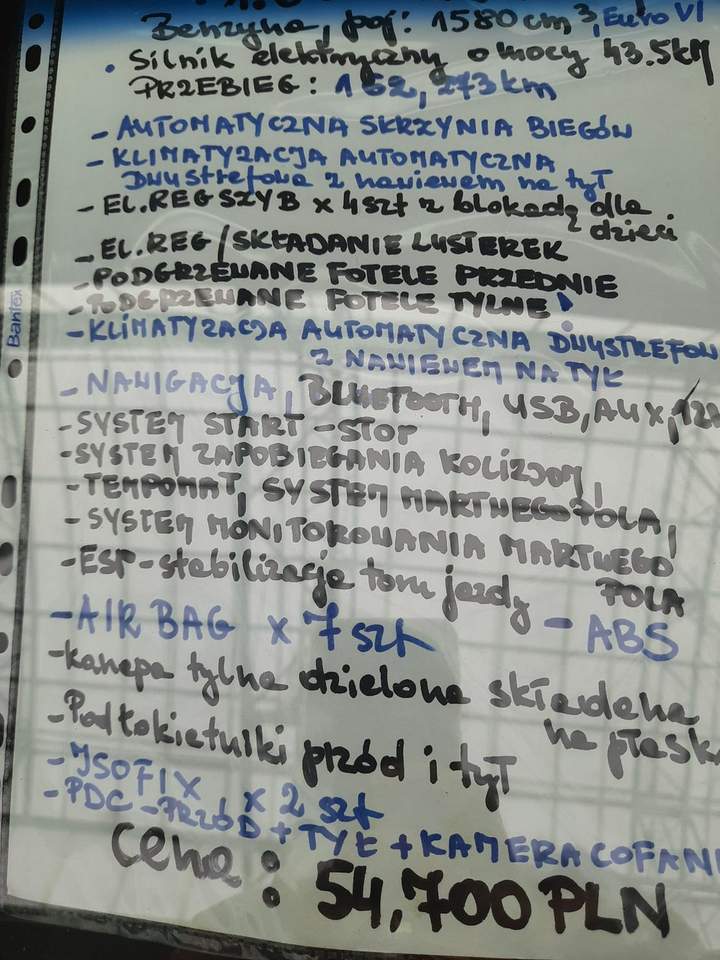 Benzyna, poj: 1580 cm³, Euro VI
• Silnik elektryczny o mocy 43.5KM
PRZEBIEG: 162,273km
- AUTOMATYCZNA SKRZYNIA BIEGÓW
- KLIMATYZACJA AUTOMATYCZNA
Dwustrefowa z nawiewem na tył
- EL.REG SZYB x 4szt z blokadą dla
dzieci
- EL.REG/SKŁADANIE LUSTEREK
- PODGRZEWANE FOTELE PRZEDNIE
- PODGRZEWANE FOTELE TYLNE
- KLIMATYZACJA AUTOMATYCZNA DWUSTREFOW
Z NAWIEWEM NA TYŁ
- NAWIGACJA, BLUETOOTH, USB, AUX, 12
- SYSTEM START-STOP
- SYSTEM ZAPOBIEGANIA KOLIZJOM,
- TEMPOMAT, SYSTEM MARTWEGO POLA,
- SYSTEM MONITOROWANIA MARTWEGO
POLA
- ESP-stabilizacja toru jazdy - ABS
- AIR BAG x 7 szt
- Kanapa tylna dzielona składana
na płask
- Podłokietniki przód i tył
- ISOFIX x 2 szt
- PDC - PRZÓD + TYŁ + KAMERA COFANI
Cena: 54,700 PLN
Bantex